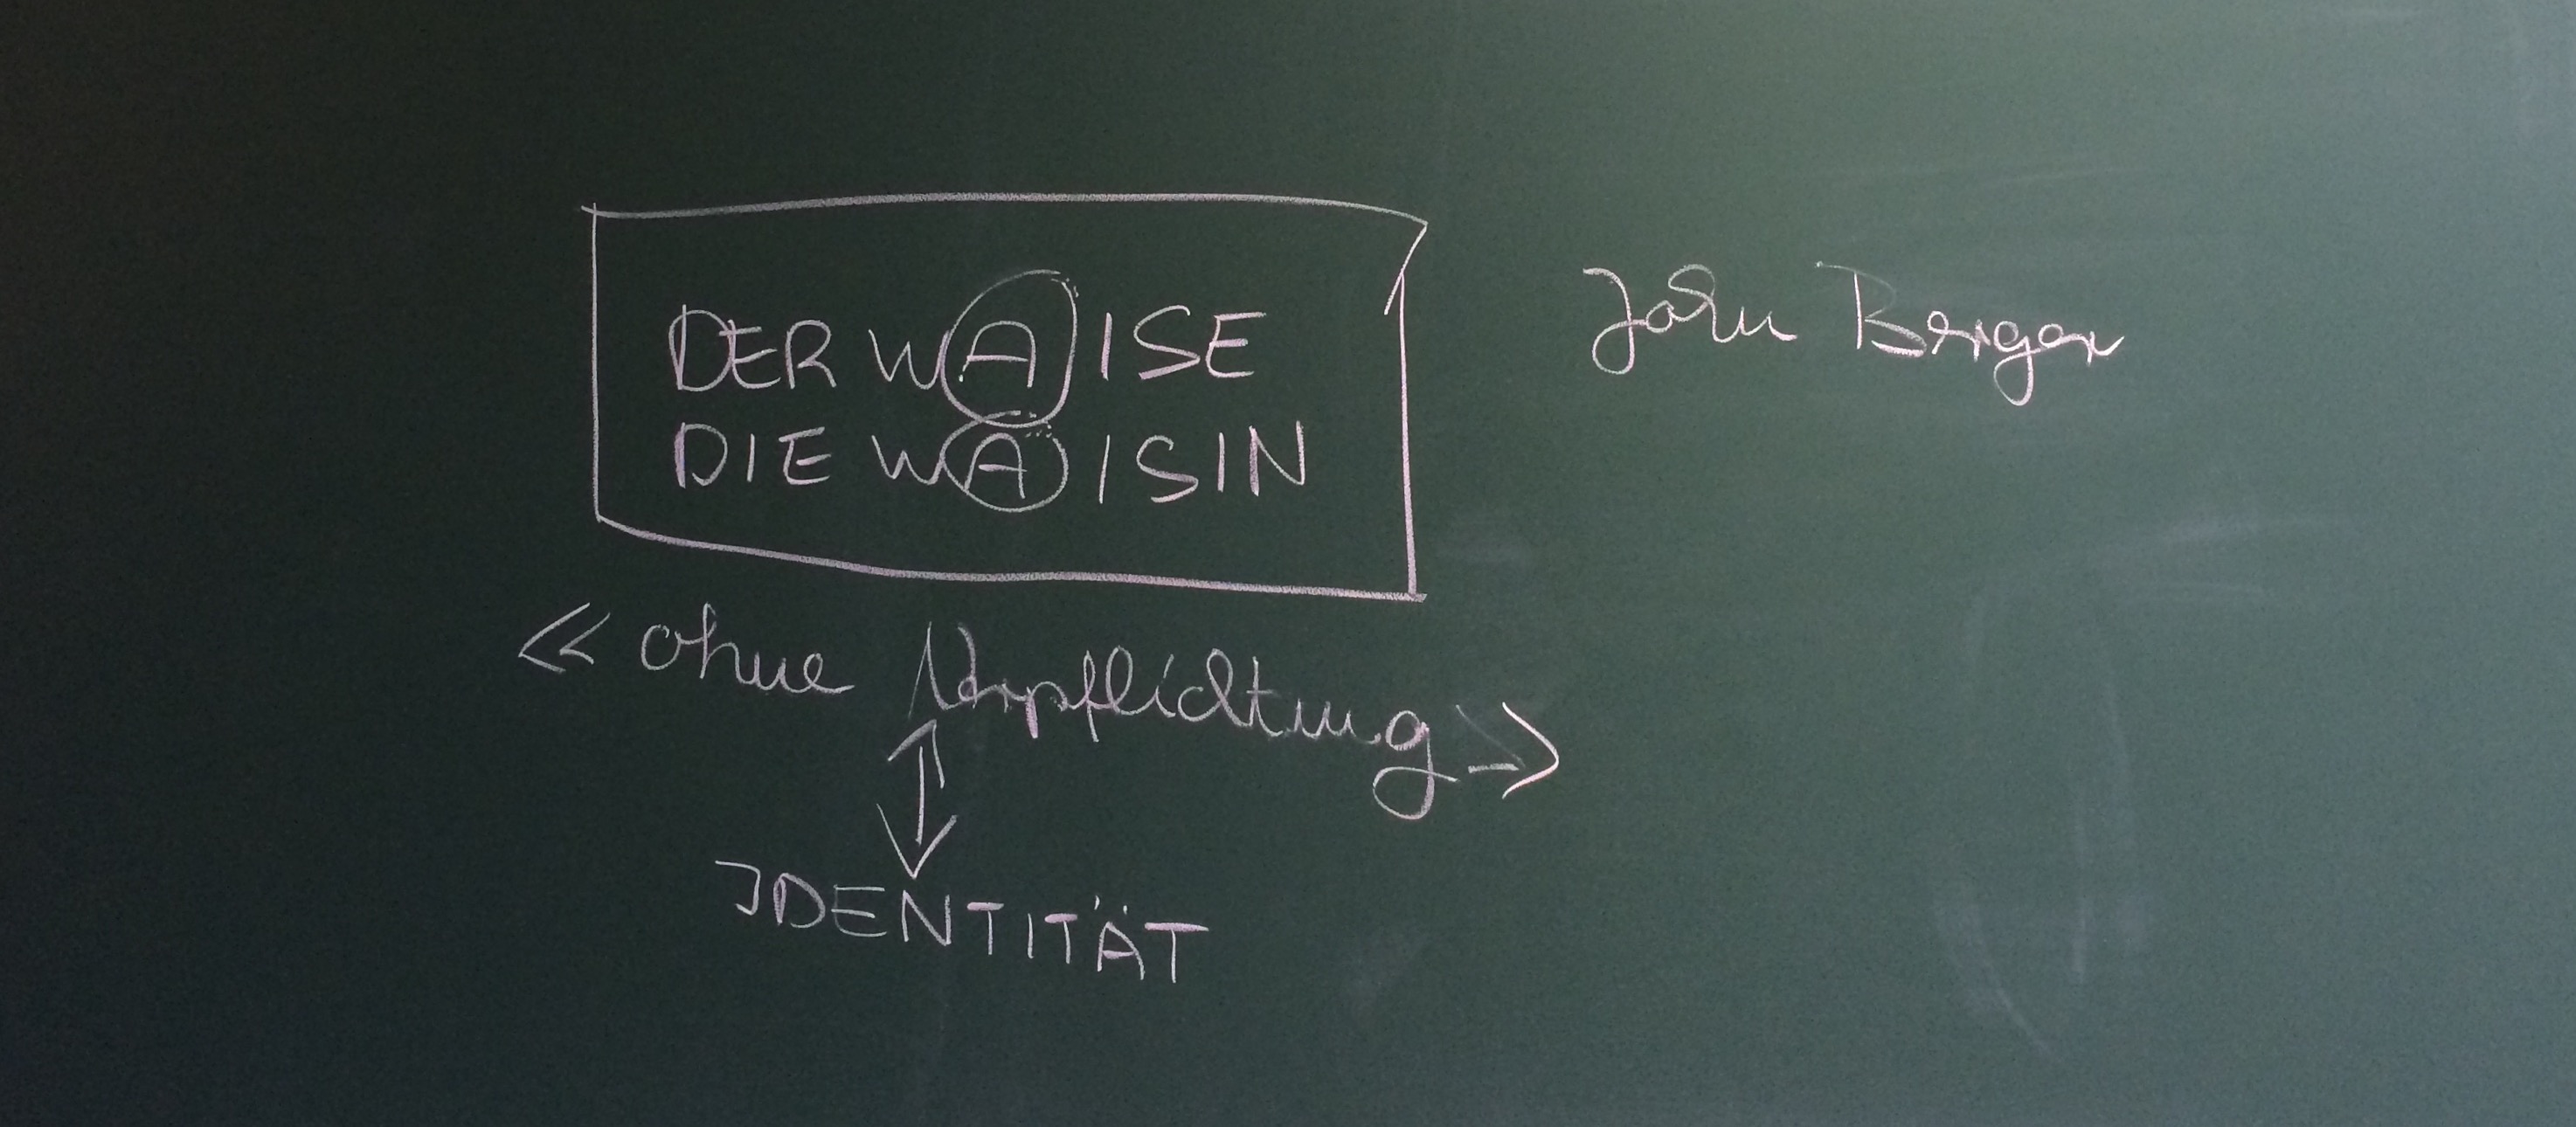 DER WAISE
DIE WAISIN
John Berger
« ohne Verpflichtung →
IDENTITÄT